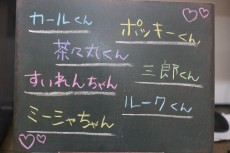 カールくん
ポッキーくん
茶々丸くん
三郎くん
すいれんちゃん
ルークくん
ミーシャちゃん